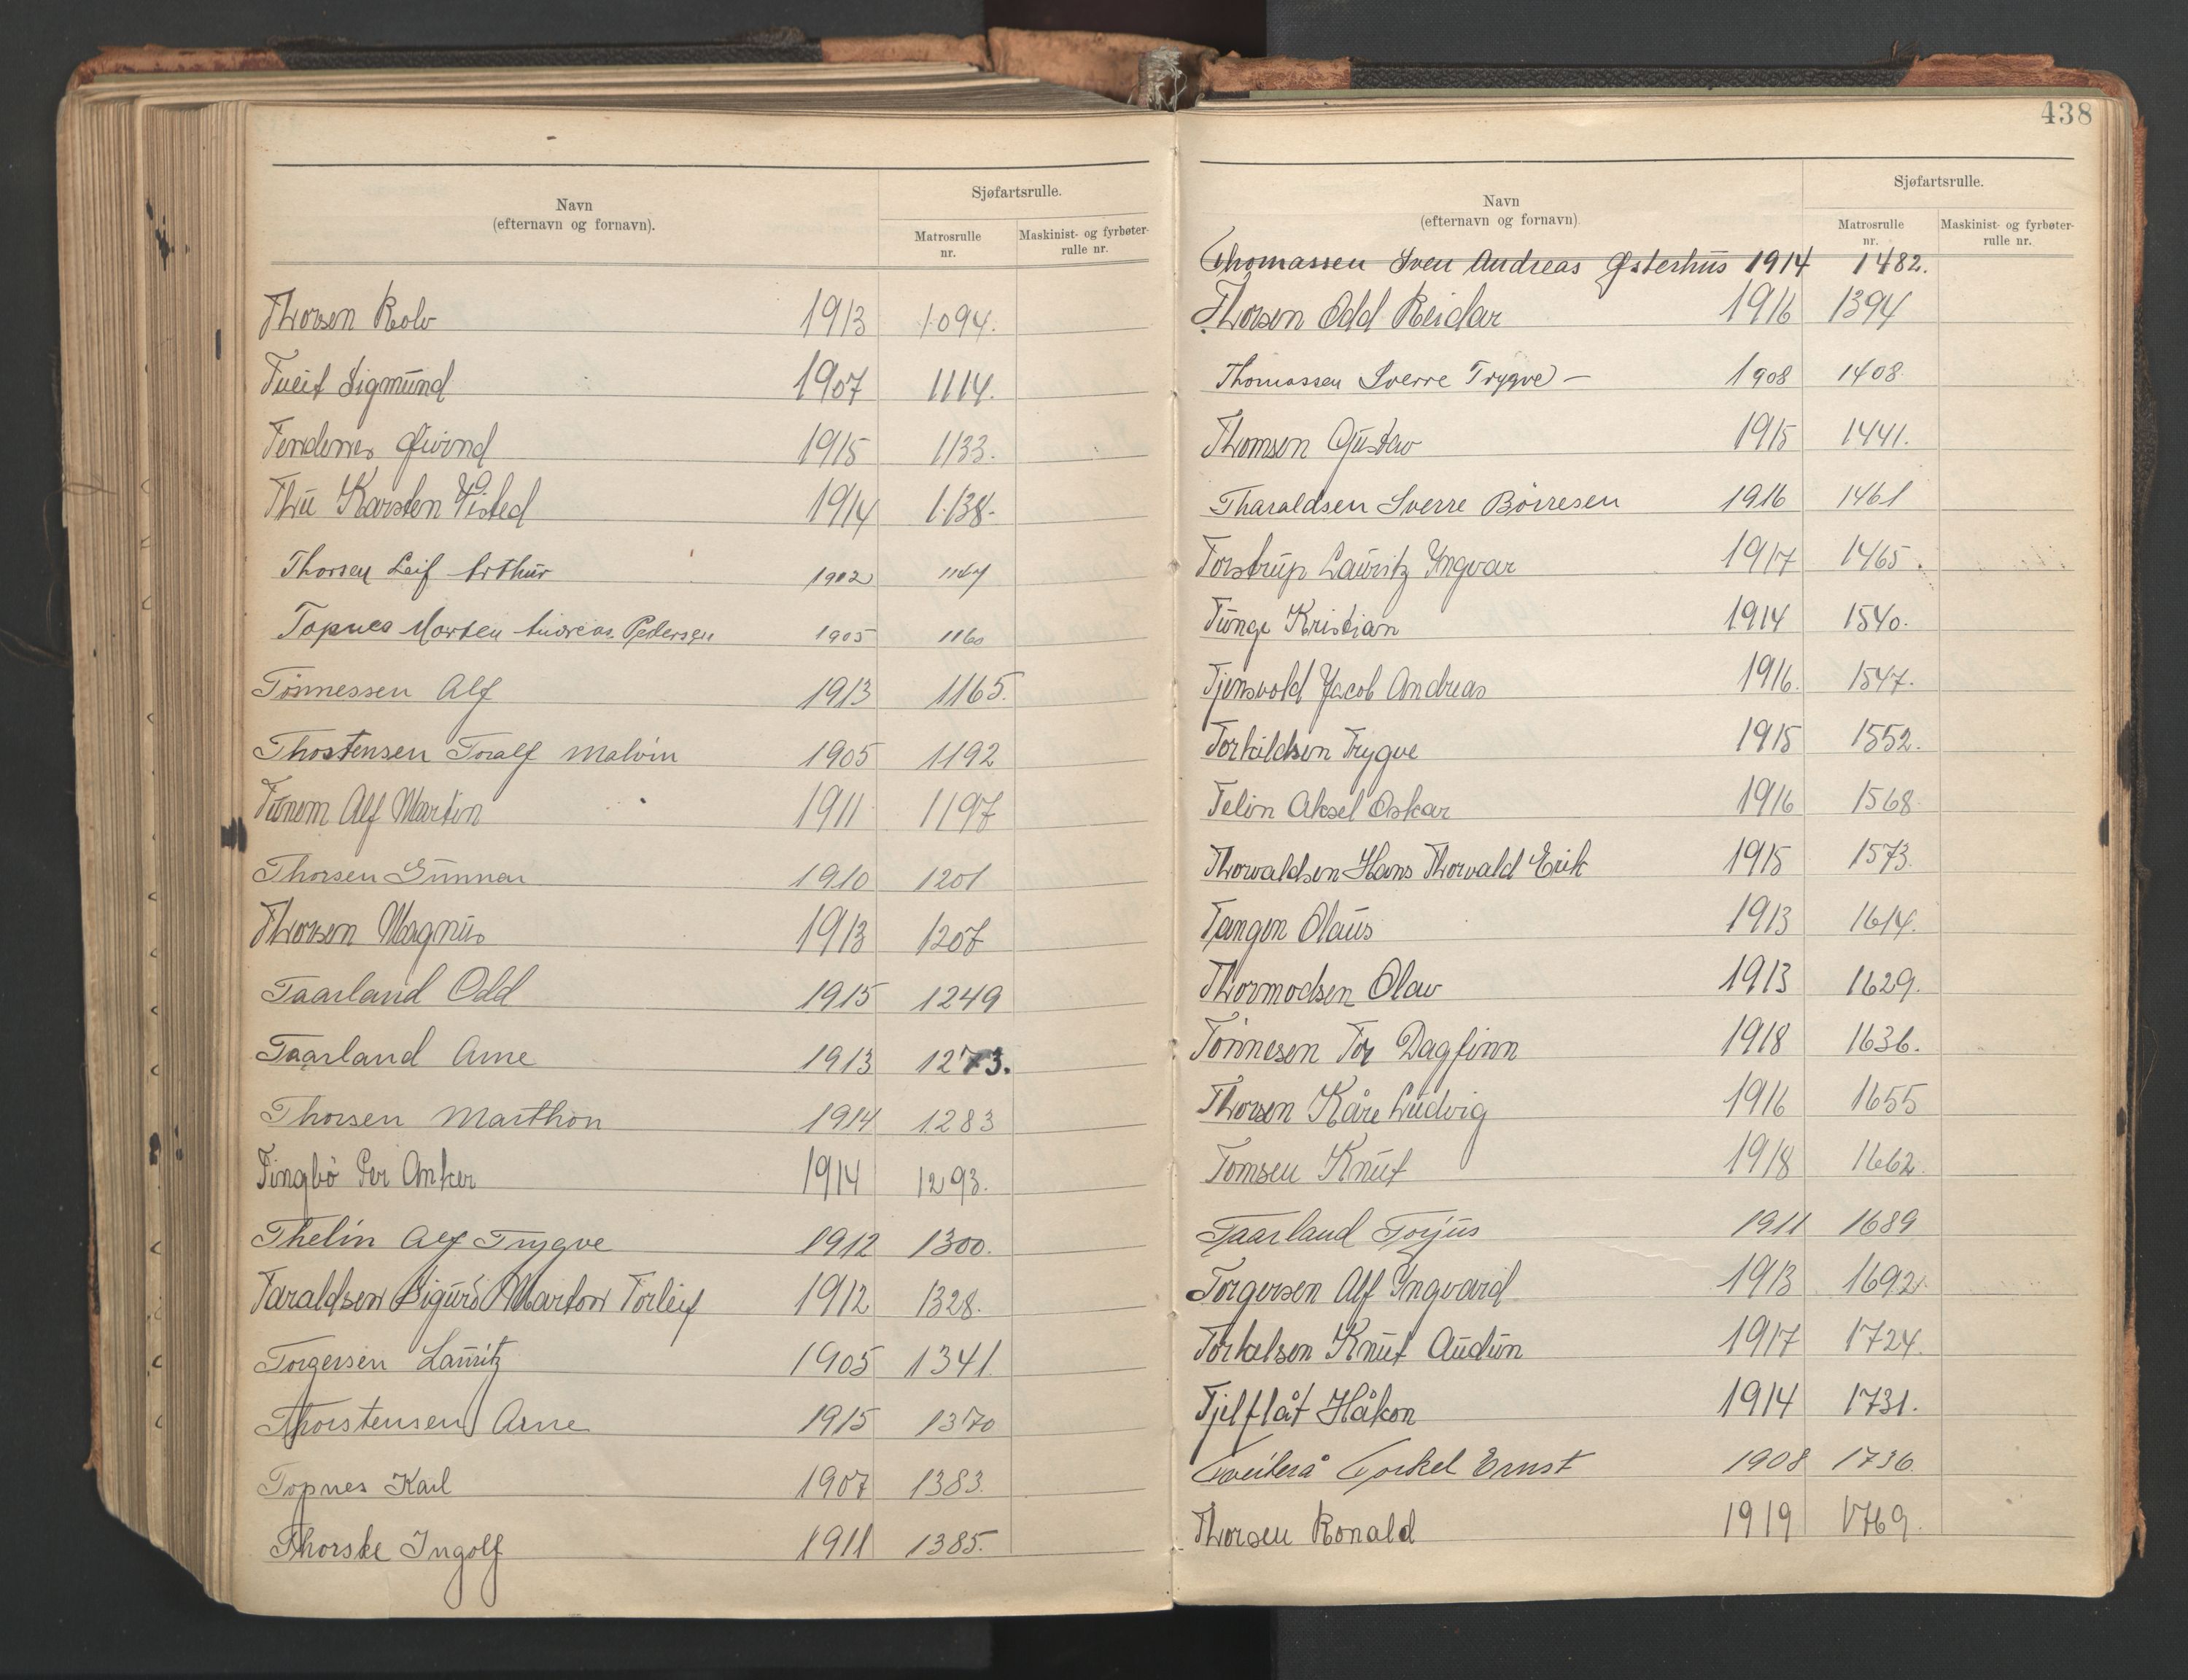 Navn
(efternavn og fornavn).
Sjøfartsrulle.
Matrosrulle nr.
Maskinist- og fyrbøter-rulle nr.
Thorsen Rolv 1913 1094.
Tueit Sigmund 1907 1114.
Tendenes Øivind 1915 1133.
Thu Karsten Visted 1914 1138.
Thorsen Leif Arthur 1902 1164
Topnes Morten Andreas Pedersen 1905 1160
Tönnessen Alf 1913 1165.
Thostensen Toralf Malvin 1905 1192
Tunem Alf Martin 1911 1197
Thorsen Gunnar 1910 1201
Thorsen Magnus 1913 1207
Taarland Odd 1915 1249
Taarland Arne 1913 1273.
Thorsen Marthon 1914 1283
Tingbö Per Anker 1914 1293.
Thelin Alf Trygve 1912 1300.
Taraldsen Sigurd Marton Torleif 1912 1328.
Torgersen Lauritz 1905 1341.
Thorstensen Arne 1915 1370
Topnes Karl 1907 1383.
Thorske Ingolf 1911 1385.
438
Navn
(efternavn og fornavn)
Sjøfartsrulle.
Matrosrulle nr.
Maskinist- og fyrbøter-rulle nr.
Thomassen Sven Andreas Østerhus 1914 1482.
Thorsen Odd Reidar 1916 1394
Thomassen Sverre Trygve – 1908 1408
Thomsen Gustav 1915 1441.
Tharaldsen Sverre Börresen 1916 1461
Torstrup Lauritz Yngvar 1917 1465.
Tunge Kristian 1914 1540.
Tjensvold Jacob Andreas 1916. 1547.
Torkildsen Trygve 1915 1552.
Telin Aksel Oskar 1916 1568
Thorvaldsen Hans Thorvald Erik 1915 1573.
Tangen Olaus 1913 1614.
Thormodsen Olav 1913 1629.
Tönnesen Tor Dagfinn 1918 1636.
Thorsen Kåre Ludvig 1916 1655
Tomsen Knut 1918 1662.
Taarland Torjus 1911 1689
Torgersen Alf Yngvard 1913 1692.
Torkelsen Knut Audun 1917 1724.
Tjelflåt Håkon 1914 1731.
Tveiterå Torkel Ernst 1908 1736.
Thorsen Ronald 1919 1769.